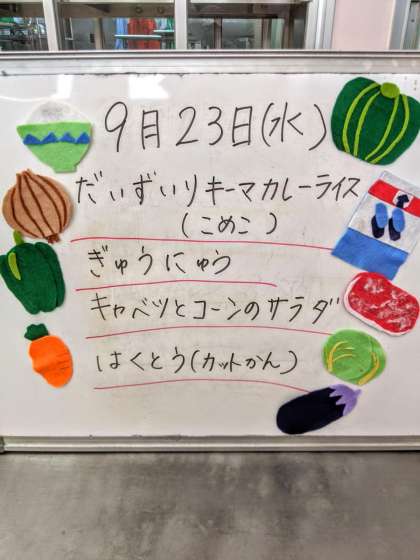 9月23日(水)
だいずいりキーマカレーライス
(こめこ)
ぎゅうにゅう
キャベツとコーンのサラダ
はくとう(カットかん)